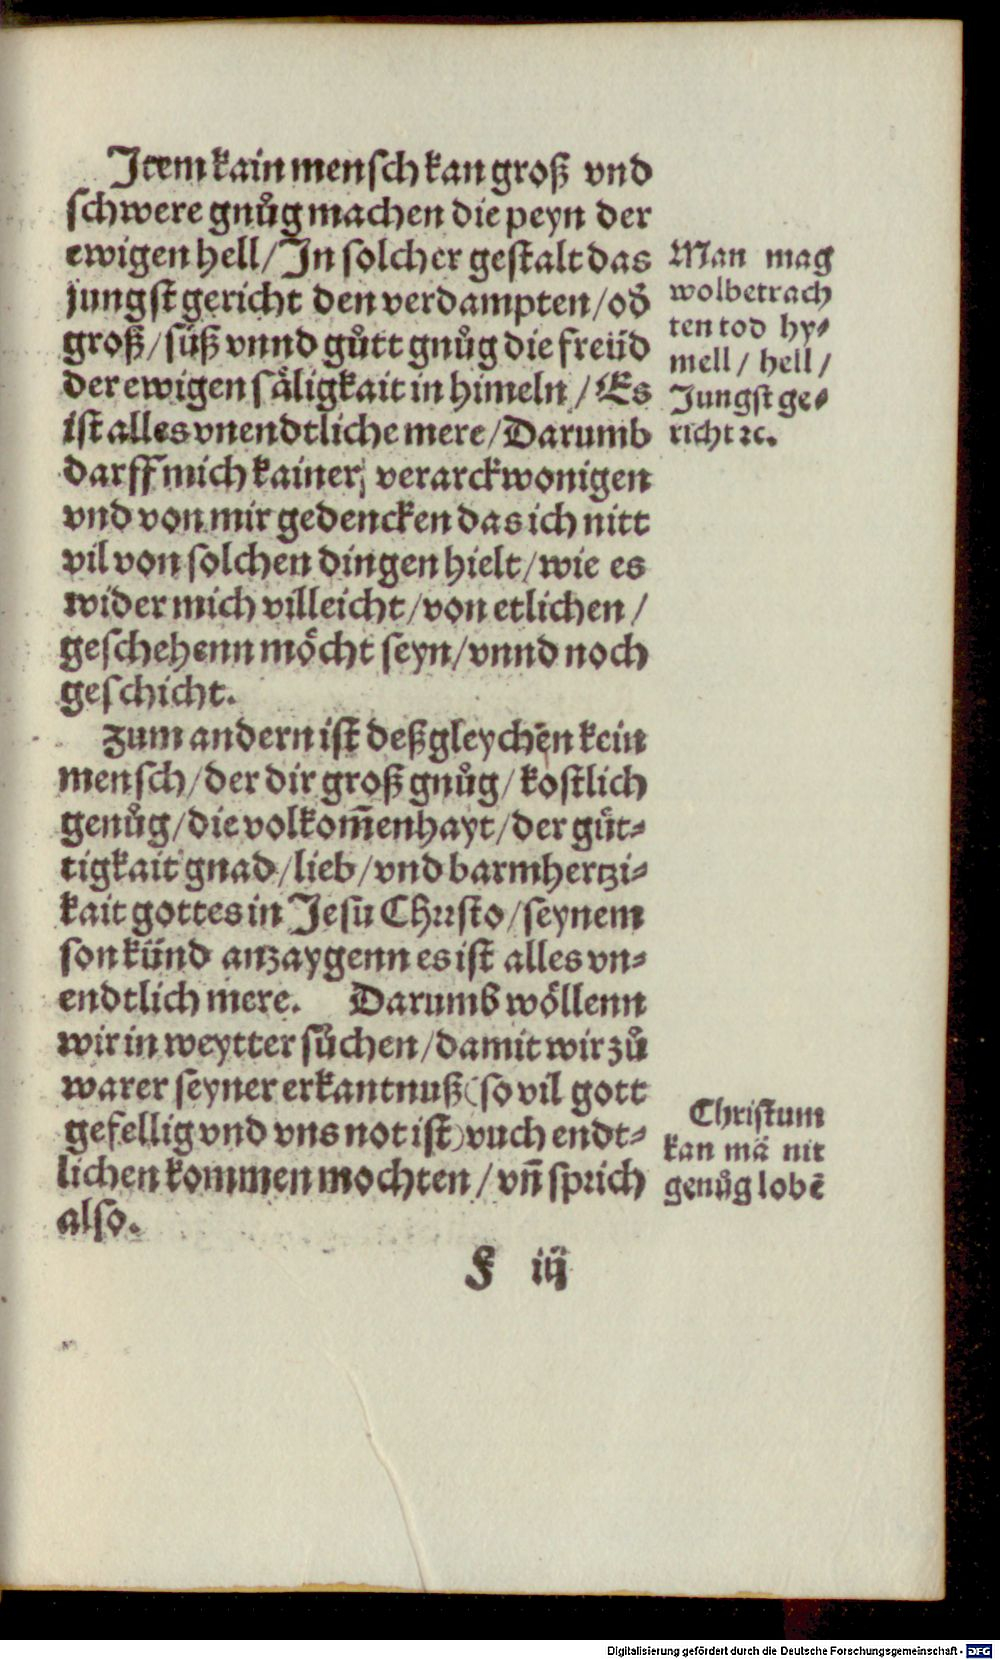 Item kain mensch kan groß vnd
schwere gnůg machen die peyn der
ewigen hell/ In solcher gestalt das
jungst gericht den verdampten/ od̕
groß/ süß vnnd gůtt gnůg die freüd
der ewigen såligkait in himeln/ Es
ist alles vnendtliche mere/ Darumb
darff mich kainer verarckwonigen
vnd von mir gedencken das ich nitt
vil von solchen dingen hielt/ wie es
wider mich villeicht/ von etlichen/
geschehenn möcht seyn/ vnnd noch
geschicht.
Man mag
wolbetrach
ten tod hy⸗
mell/ hell/
Jungst ge⸗
richt ꝛc.
Zum andern ist deßgleychēn kein
mensch/ der dir groß gnůg/ kostlich
genůg/ die volkom̄enhayt/ der güt⸗
tigkait gnad/ lieb/ vnd barmhertzi⸗
kait gottes in Jesu Christo/ seynem
son künd anzaygenn es ist alles vn⸗
endtlich mere. Darumb wöllenn
wir in weytter sůchen/ damit wir zů
warer seyner erkantnuß (so vil gott
gefellig vnd vns not ist) vuch endt⸗
lichen kommen mochten/ vn̄ sprich
also.
Christum
kan mā nit
genůg lobē
F iij
Digitalisierung gefördert durch die Deutsche Forschungsgemeinschaft - DFG